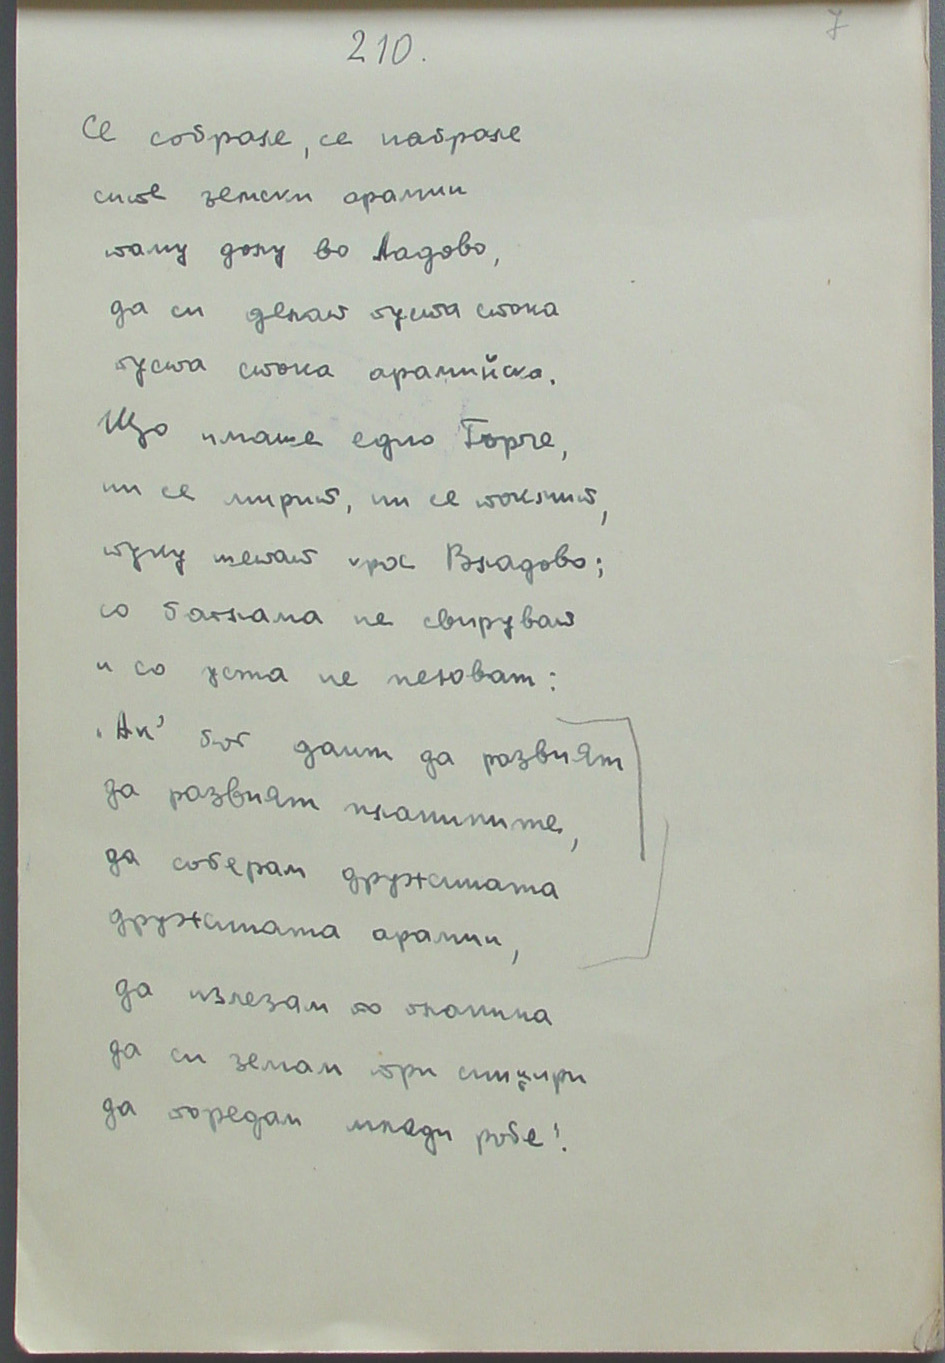 7
210.
Се собрале, се набрале
сите земски арамии
таму долу во Владово,
да си делат пуста стока
пуста стока арамийска.
Що имаше едно Горче,
ни се мирит, ни се токмит,
туку шетат крос Владово;
со бавлама не свируват
и со уста не пеюват:
„Ак' бог даит да развият
да развият планините,
да соберам дружината
дружината арамии,
да излезам по планина
да си земам три синџири
да поредам млади робе!